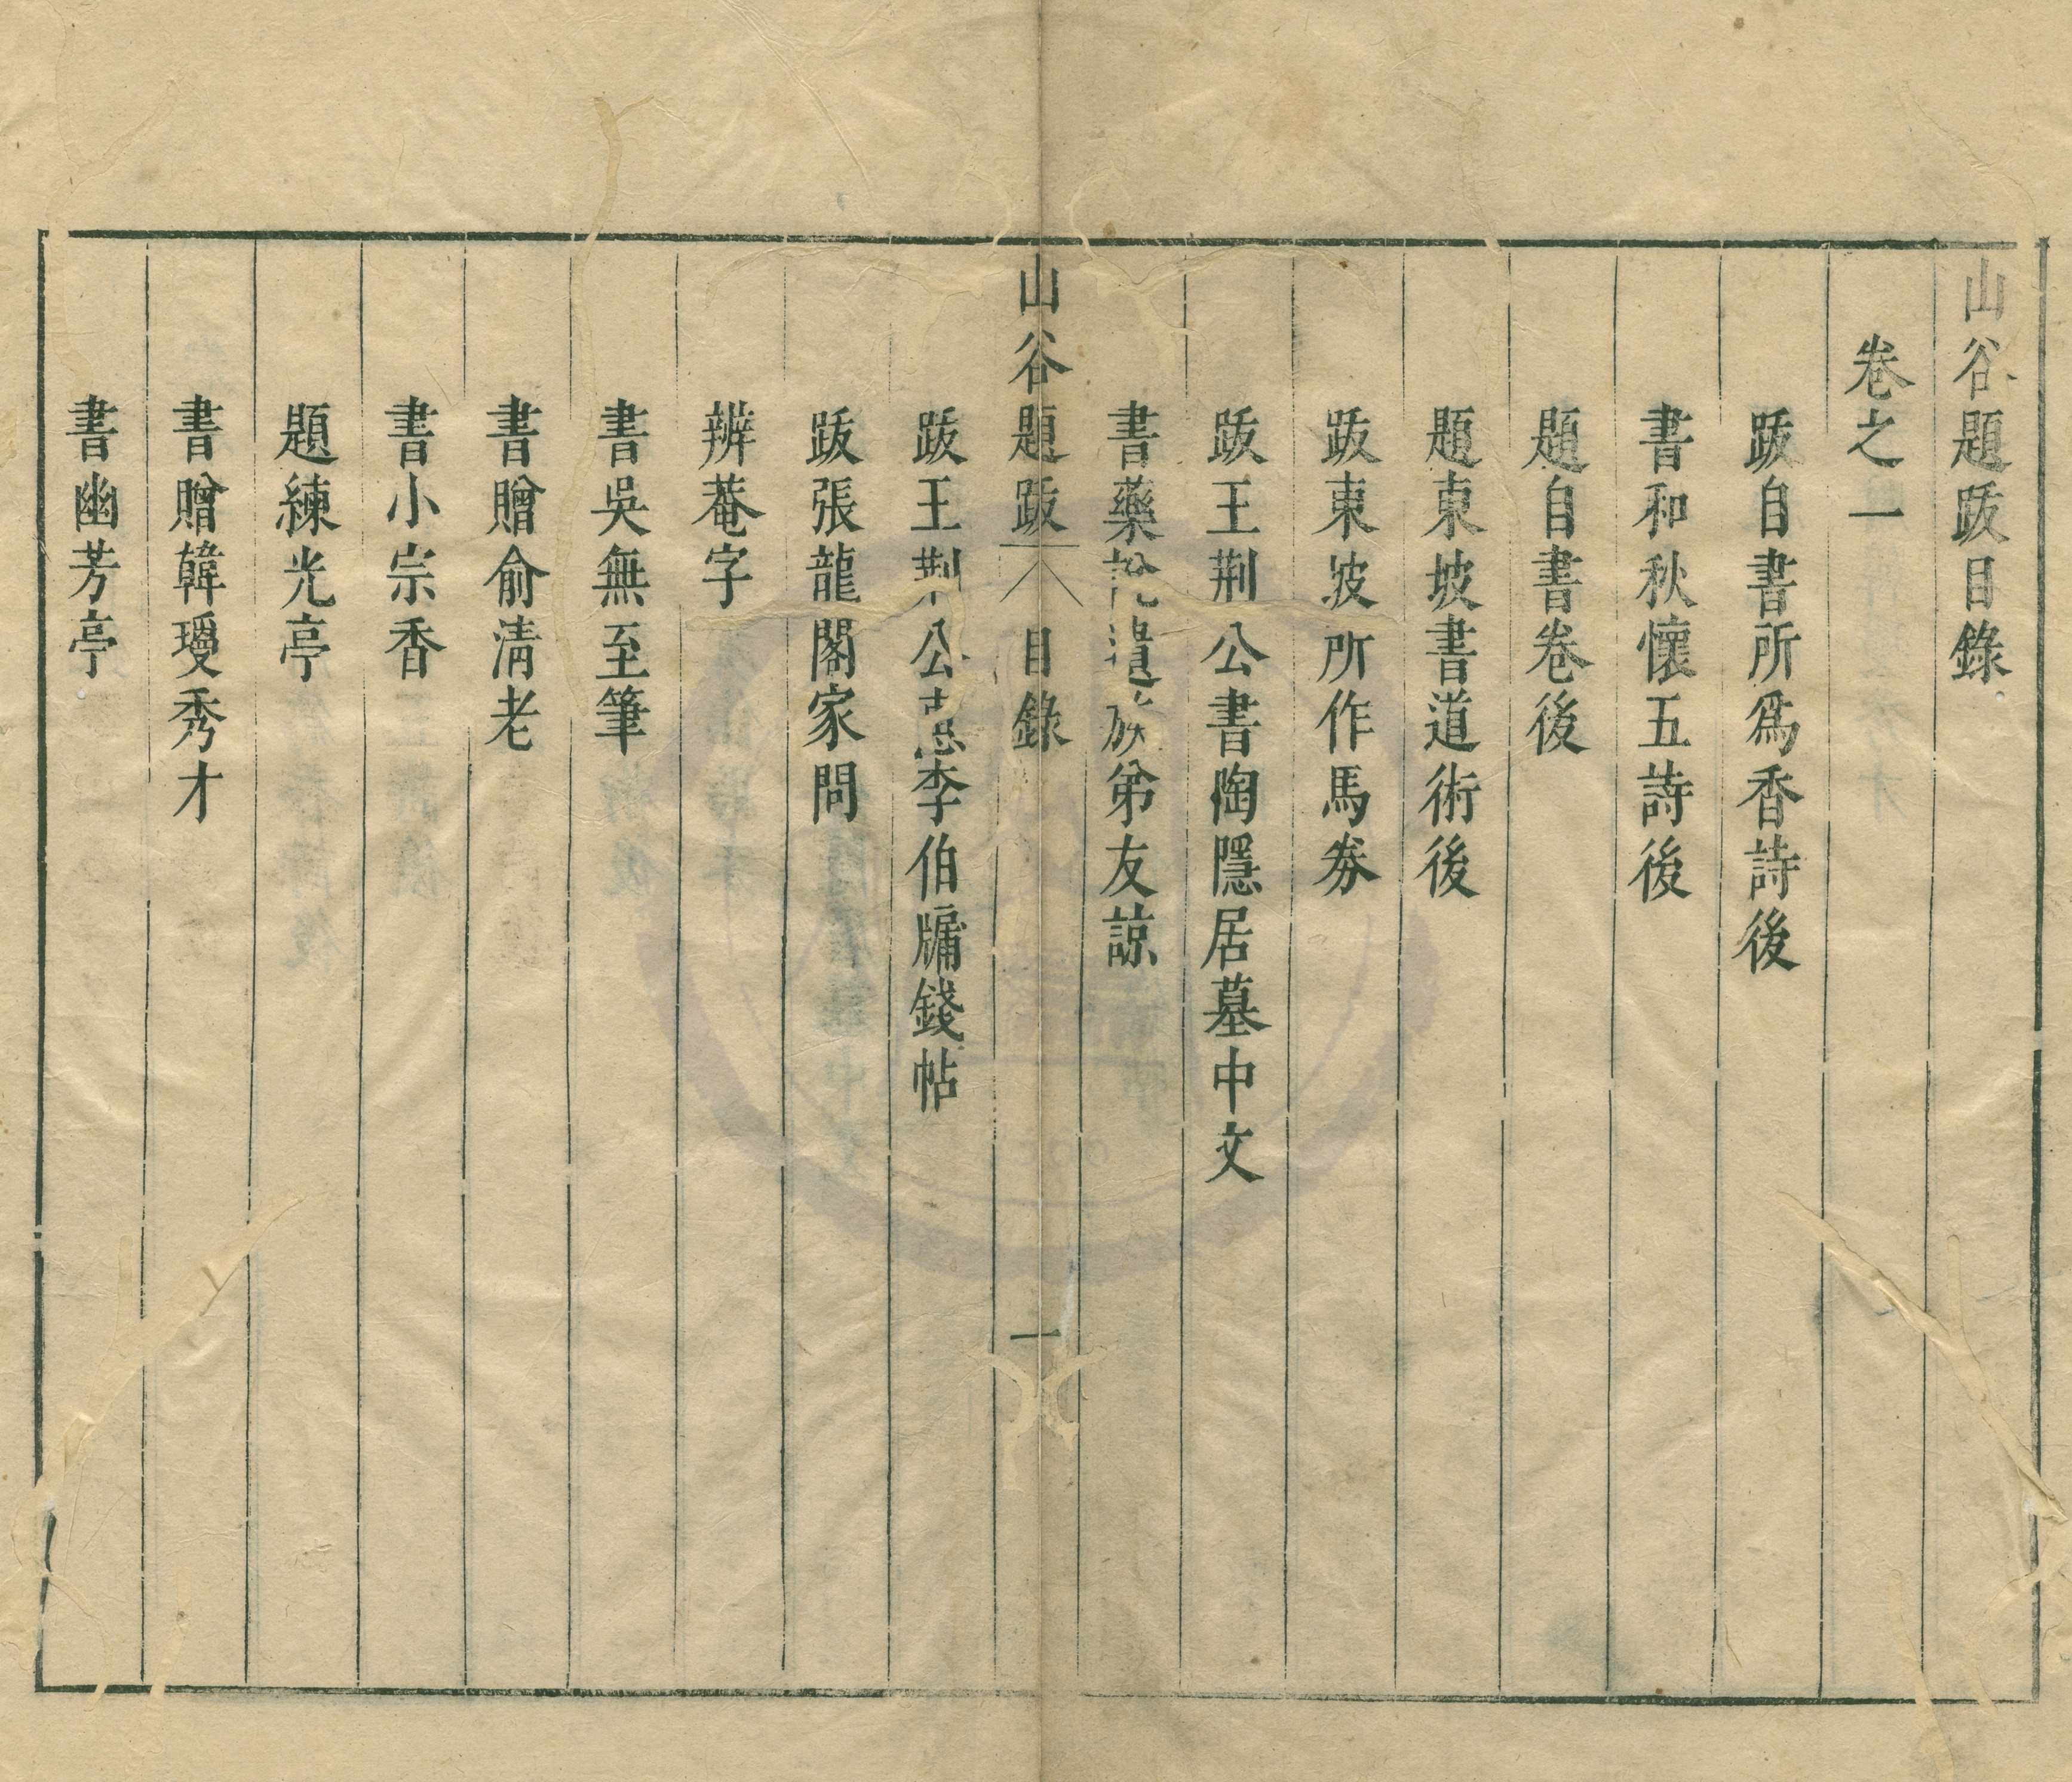 山谷題跋目錄
卷之一
跋自書所爲香詩後
書和秋懷五詩後
題自書卷後
題東坡書道術後
跋東坡所作馬券
跋王荆公書陶隱居墓中文
書藥說遺族弟友諒
山谷題跋 目錄 一
跋王荆公惠李伯牖錢帖
跋張龍閣家問
辨菴字
書吳無至筆
書贈俞清老
書小宗香
題練光亭
書贈韓瓊秀才
書幽芳亭